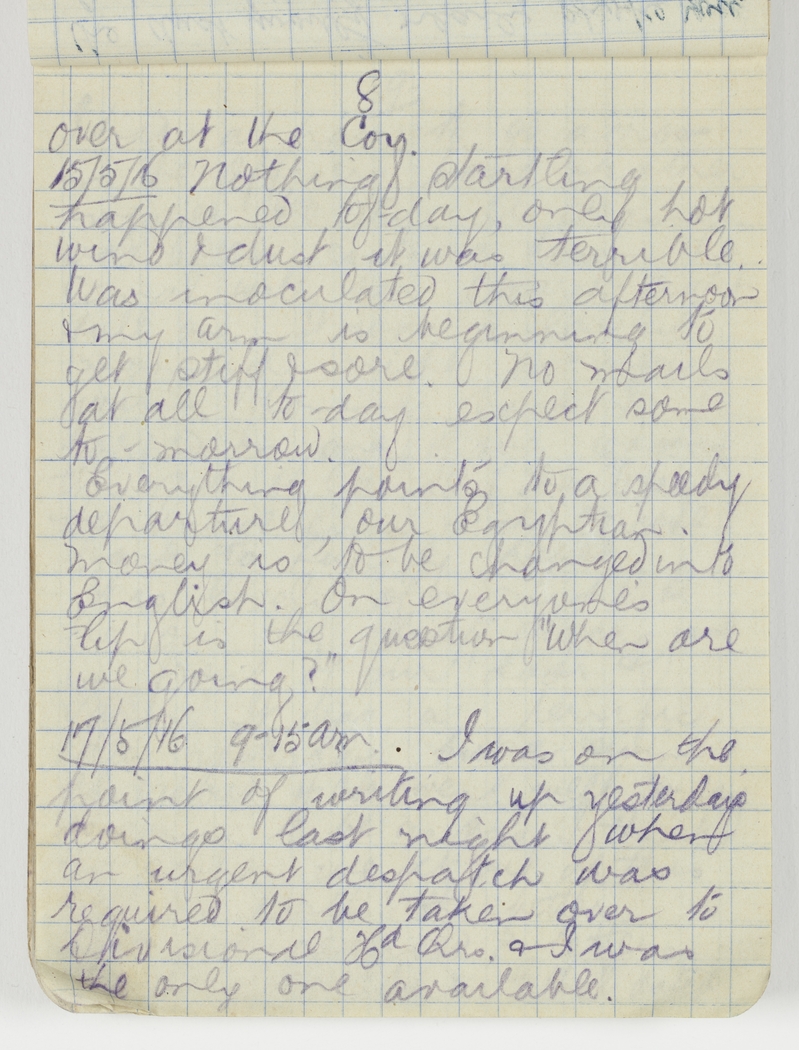 8
over at the Coy.
15/5/16 Nothing startling
happened to-day, only hot
wind & dust it was terrible.
Was inoculated this afternoon
& my arm is beginning to
get stiff & sore. No mails
at all to-day expect some
to-morrow.
Everything points to a speedy
departure, our Egyptian
money is to be changed into
English. On everyone's
lip is the question "When are
we going?"
17/5/16 9-15am. I was on the
point of writing up yesterdays
doings last night when
an urgent despatch was
required to be taken over to
Divisional Hd Qrs. & I was
the only one available.